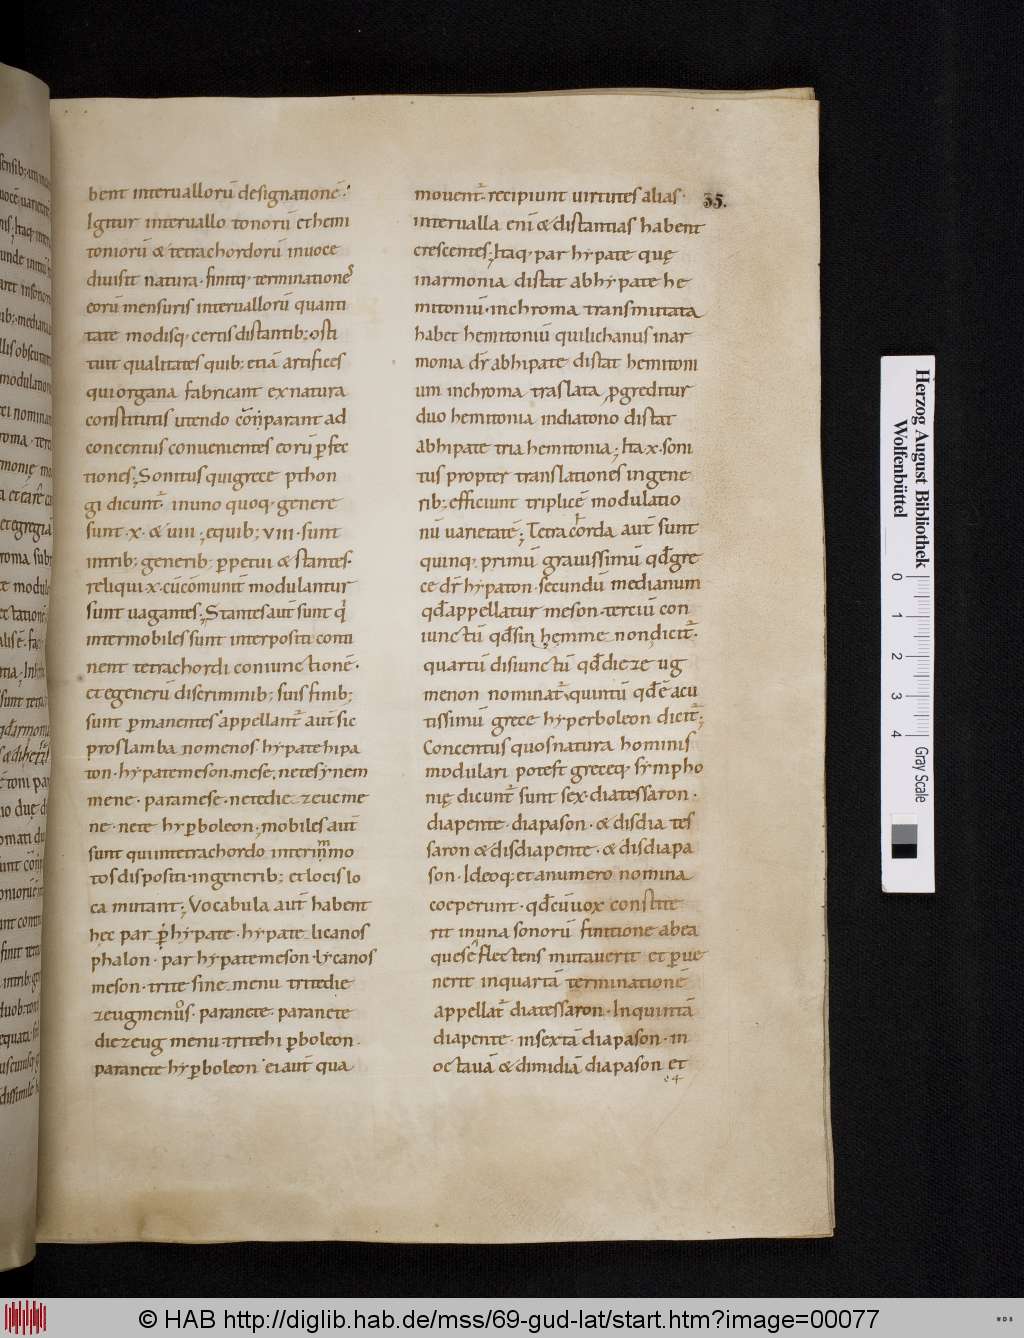 bent interuallorū designationē.
Igitur interuallo tonorū ethemi
toniorū & tetrachordorū inuoce
diuisit natura. finitq; terminationes
eorū mensuris interuallorū quanti
tate modisq; certis distantib; osti
tuit qualitates quib; etiā artifices
qui organa fabricant exnatura
constitutis utendo cōn̄parant ad
concentus conuenientes eorū ꝑfec
tiones; Sonitus qui grece pthon
gi dicunt̄. inuno quoq; genere
sunt .x. & uiii; equib; VIII. sunt
intrib; generib; ꝑpetui & stantes.
reliqui .x. cū cōmunit̄ modulantur
sunt uagantes; Stantes aut̄ sunt q̇
inter mobiles sunt interpositi conti
nent tetrachordi coniunctionē.
et egenerū discriminib; suis finib;
sunt ꝑmanentes appellant̄ aut̄ sic
proslamba nomenos hypate hipa
ton. hypatemeson. mese. netesynem
mene. paramese. netedie zeucme
ne. nete hyꝑboleon. mobiles aut̄
sunt qui intetrachordo inter
tos dispositi. ingenerib; et locis lo
ca mutant; Vocabula aut̄ habent
hęc par hypate. hypate licanos
phalon. par hypatemeson. lycanos
meson. trite sine menu tritedie
zeugmenos. paranete. paranete
diezeug menu. tritehi ꝑboleon.
paranete hyꝑboleon ei aut̄ qua
mouent̄. recipiunt uirtutes alias.
35.
interualla enī & distantias habent
crescentes; Itaq; par hypate quę
inarmonia distat abhypate he
mitoniū. inchroma transmutata
habet hemitoniū qui lichanus inar
monia dr̄ abhipate distat hemitoni
um inchroma traslata ꝓgreditur
duo hemitonia indiatono distat
abhipate tria hemitonia; Ita .x. soni
tus propter translationes ingene
rib; efficiunt triplicē modulatio
nū uarietatē; Tetracorda aut̄ sunt
quinq; primū grauissimū qd̄ gre
ce dr̄ hypaton. secundū medianum
qd̄ appellatur meson. terciū con
iunctū qd̄ sin hęmme non dicit̄.
quartū disiunctū qd̄ die ze ug
menon nominat̄. quintū qd̄ ē acu
tissimū grece hyperboleon dicit̄;
Concentus quos natura hominis
modulari potest greceq; sympho
nię dicunt̄ sunt sex. diatessaron.
diapente. diapason. & disdia tes
saron & disdiapente. & disdiapa
son. Ideoq; et anumero nomina
coeperunt. qd̄ cū uox constite
rit in una sonorū finitione abea
que se flectens mutauerit et ꝑue
nerit inquartā terminationē
appellat̄ diatessaron. Inquintā
diapente. insextā diapason. in
octauā & dimidiā diapason et
Herzog August Bibliothek
Wolfenbüttel
0 1 2 3 4
Gray Scale
© HAB http://diglib.hab.de/mss/69-gud-lat/start.htm?image=00077